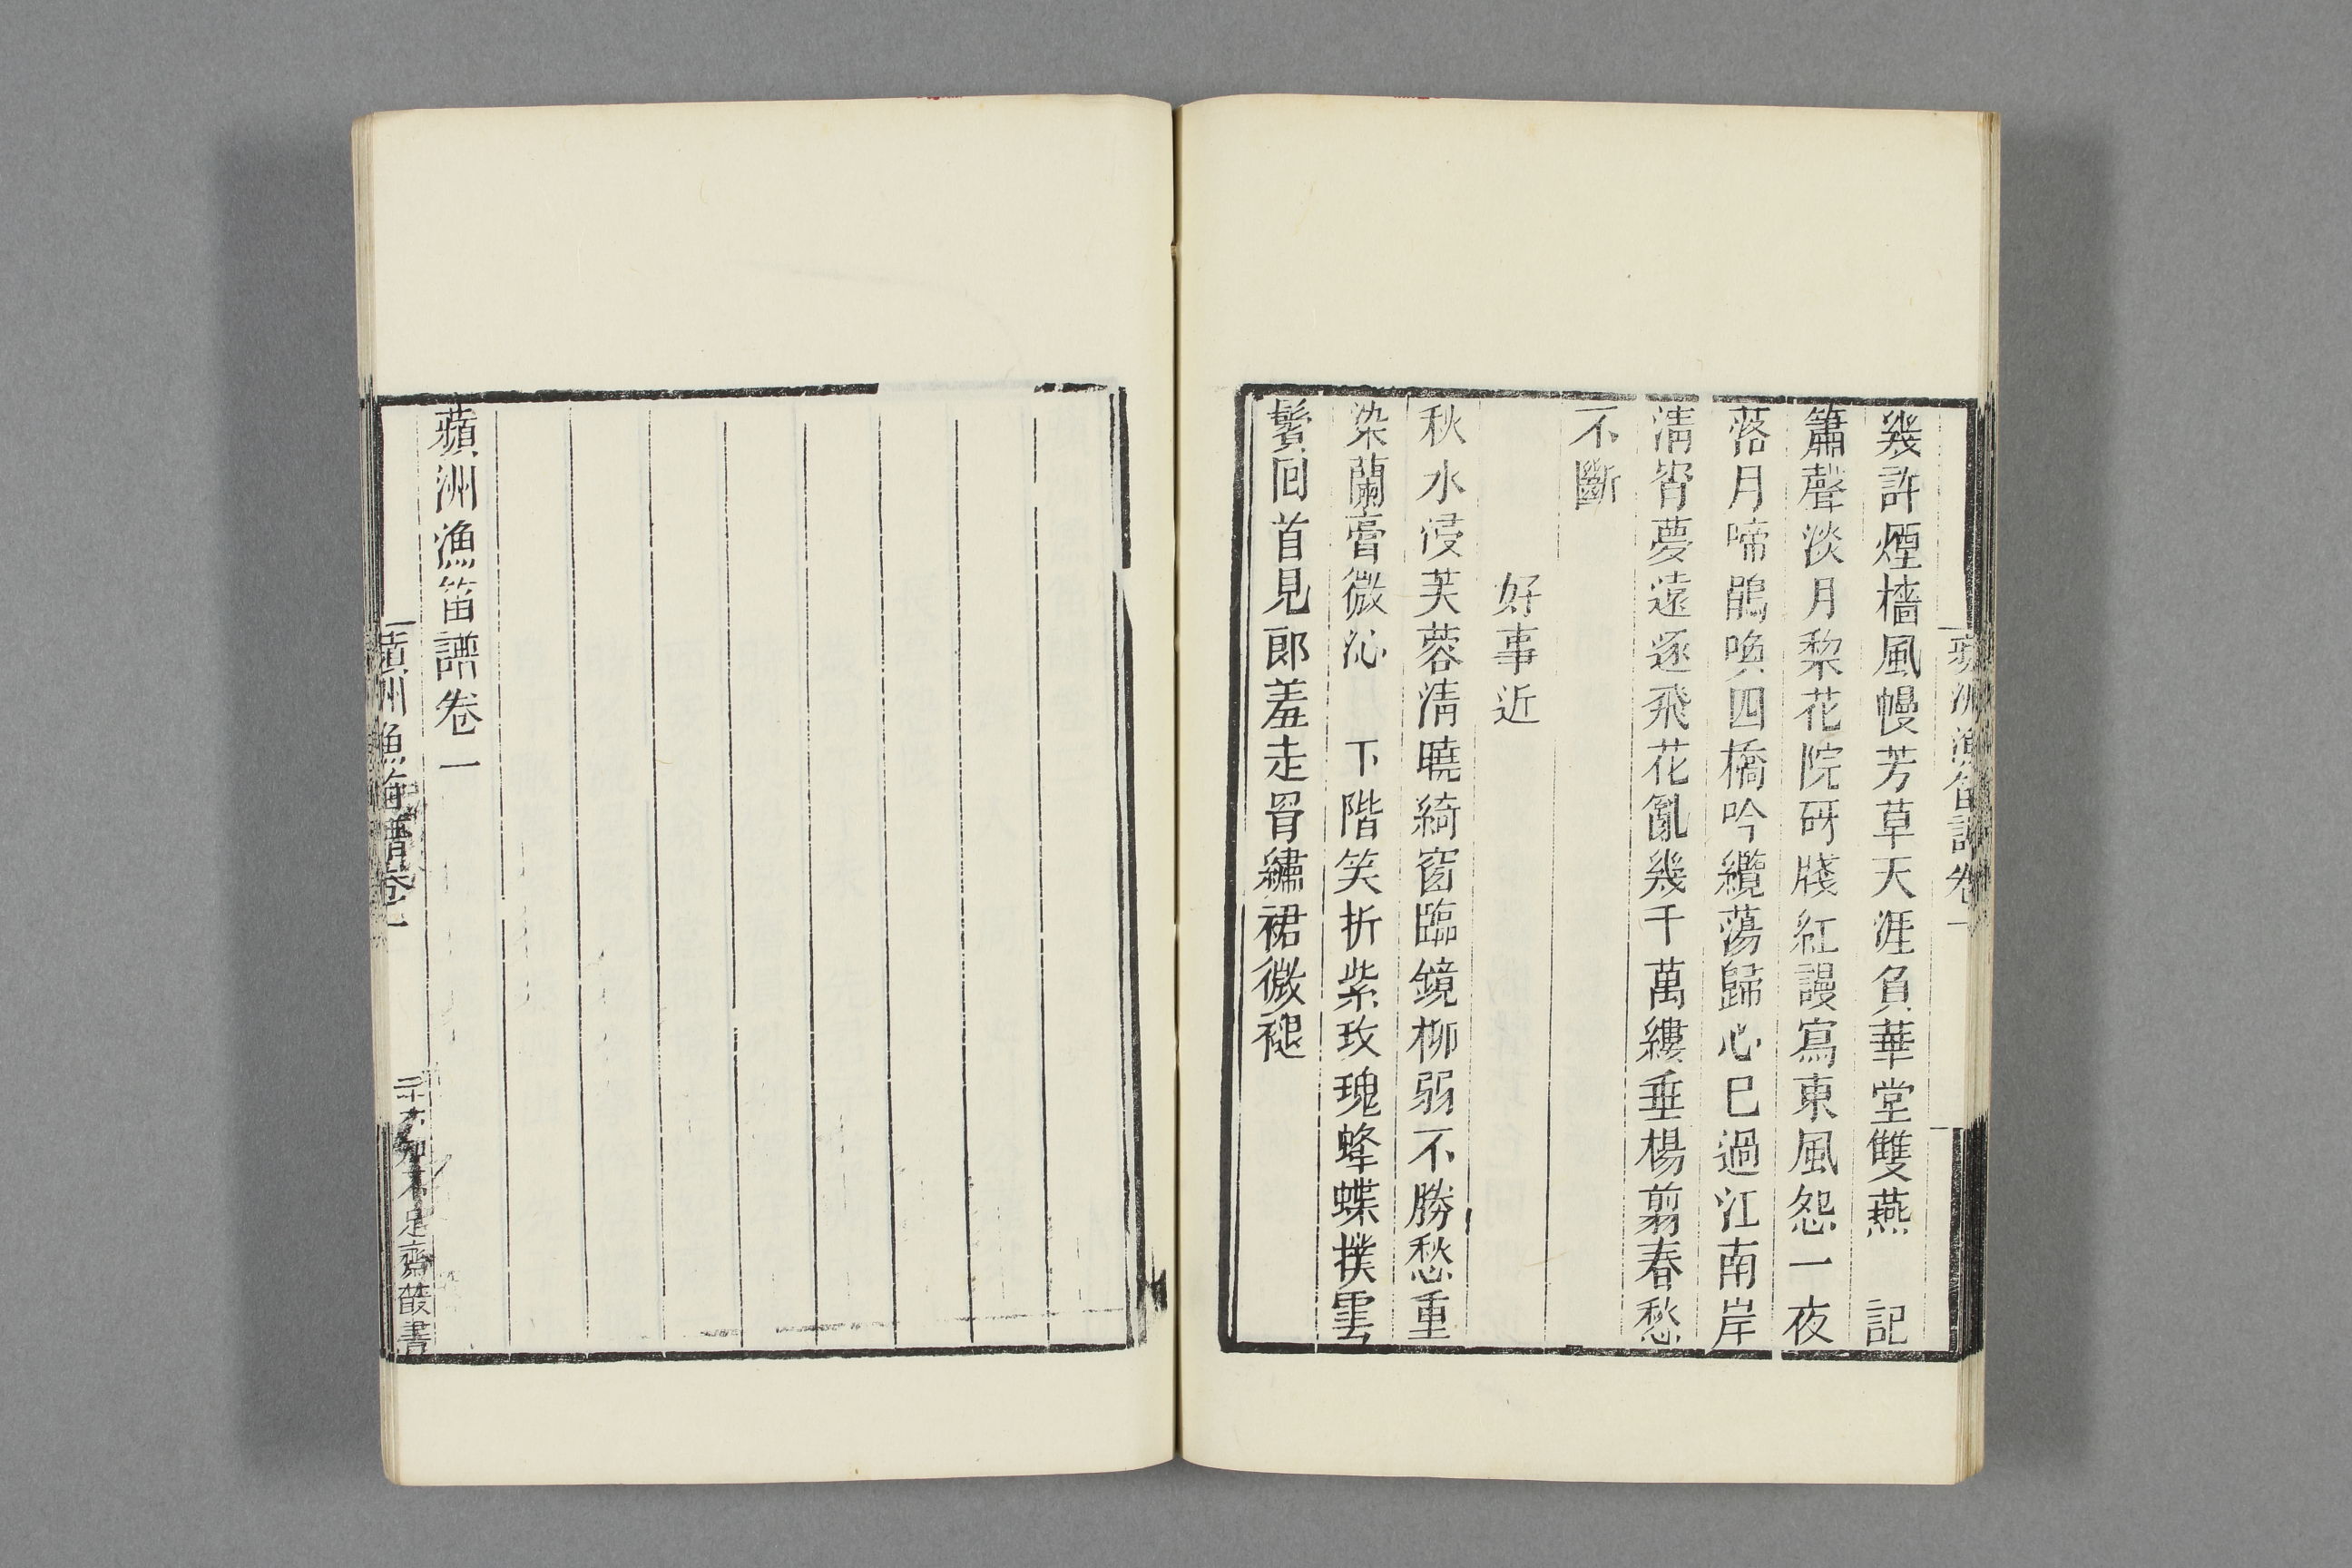 幾許煙檣風幔芳草天涯負華堂雙燕　記
簫聲淡月棃花院砑牋紅謾寫東風怨一夜
落月啼鵑喚四橋吟纜蕩歸心已過江南岸
清宵夢遠逐飛花亂幾千萬縷垂楊翦春愁
不斷
好事近
秋水浸芙蓉清曉綺窗臨鏡柳弱不勝愁重
染蘭膏微沁　下階笑折紫玫瑰蜂蝶撲雲
鬢回首見郎羞走罥繡裙微褪
蘋洲漁笛譜卷一
蘋洲漁笛譜卷一
知不足齋叢書